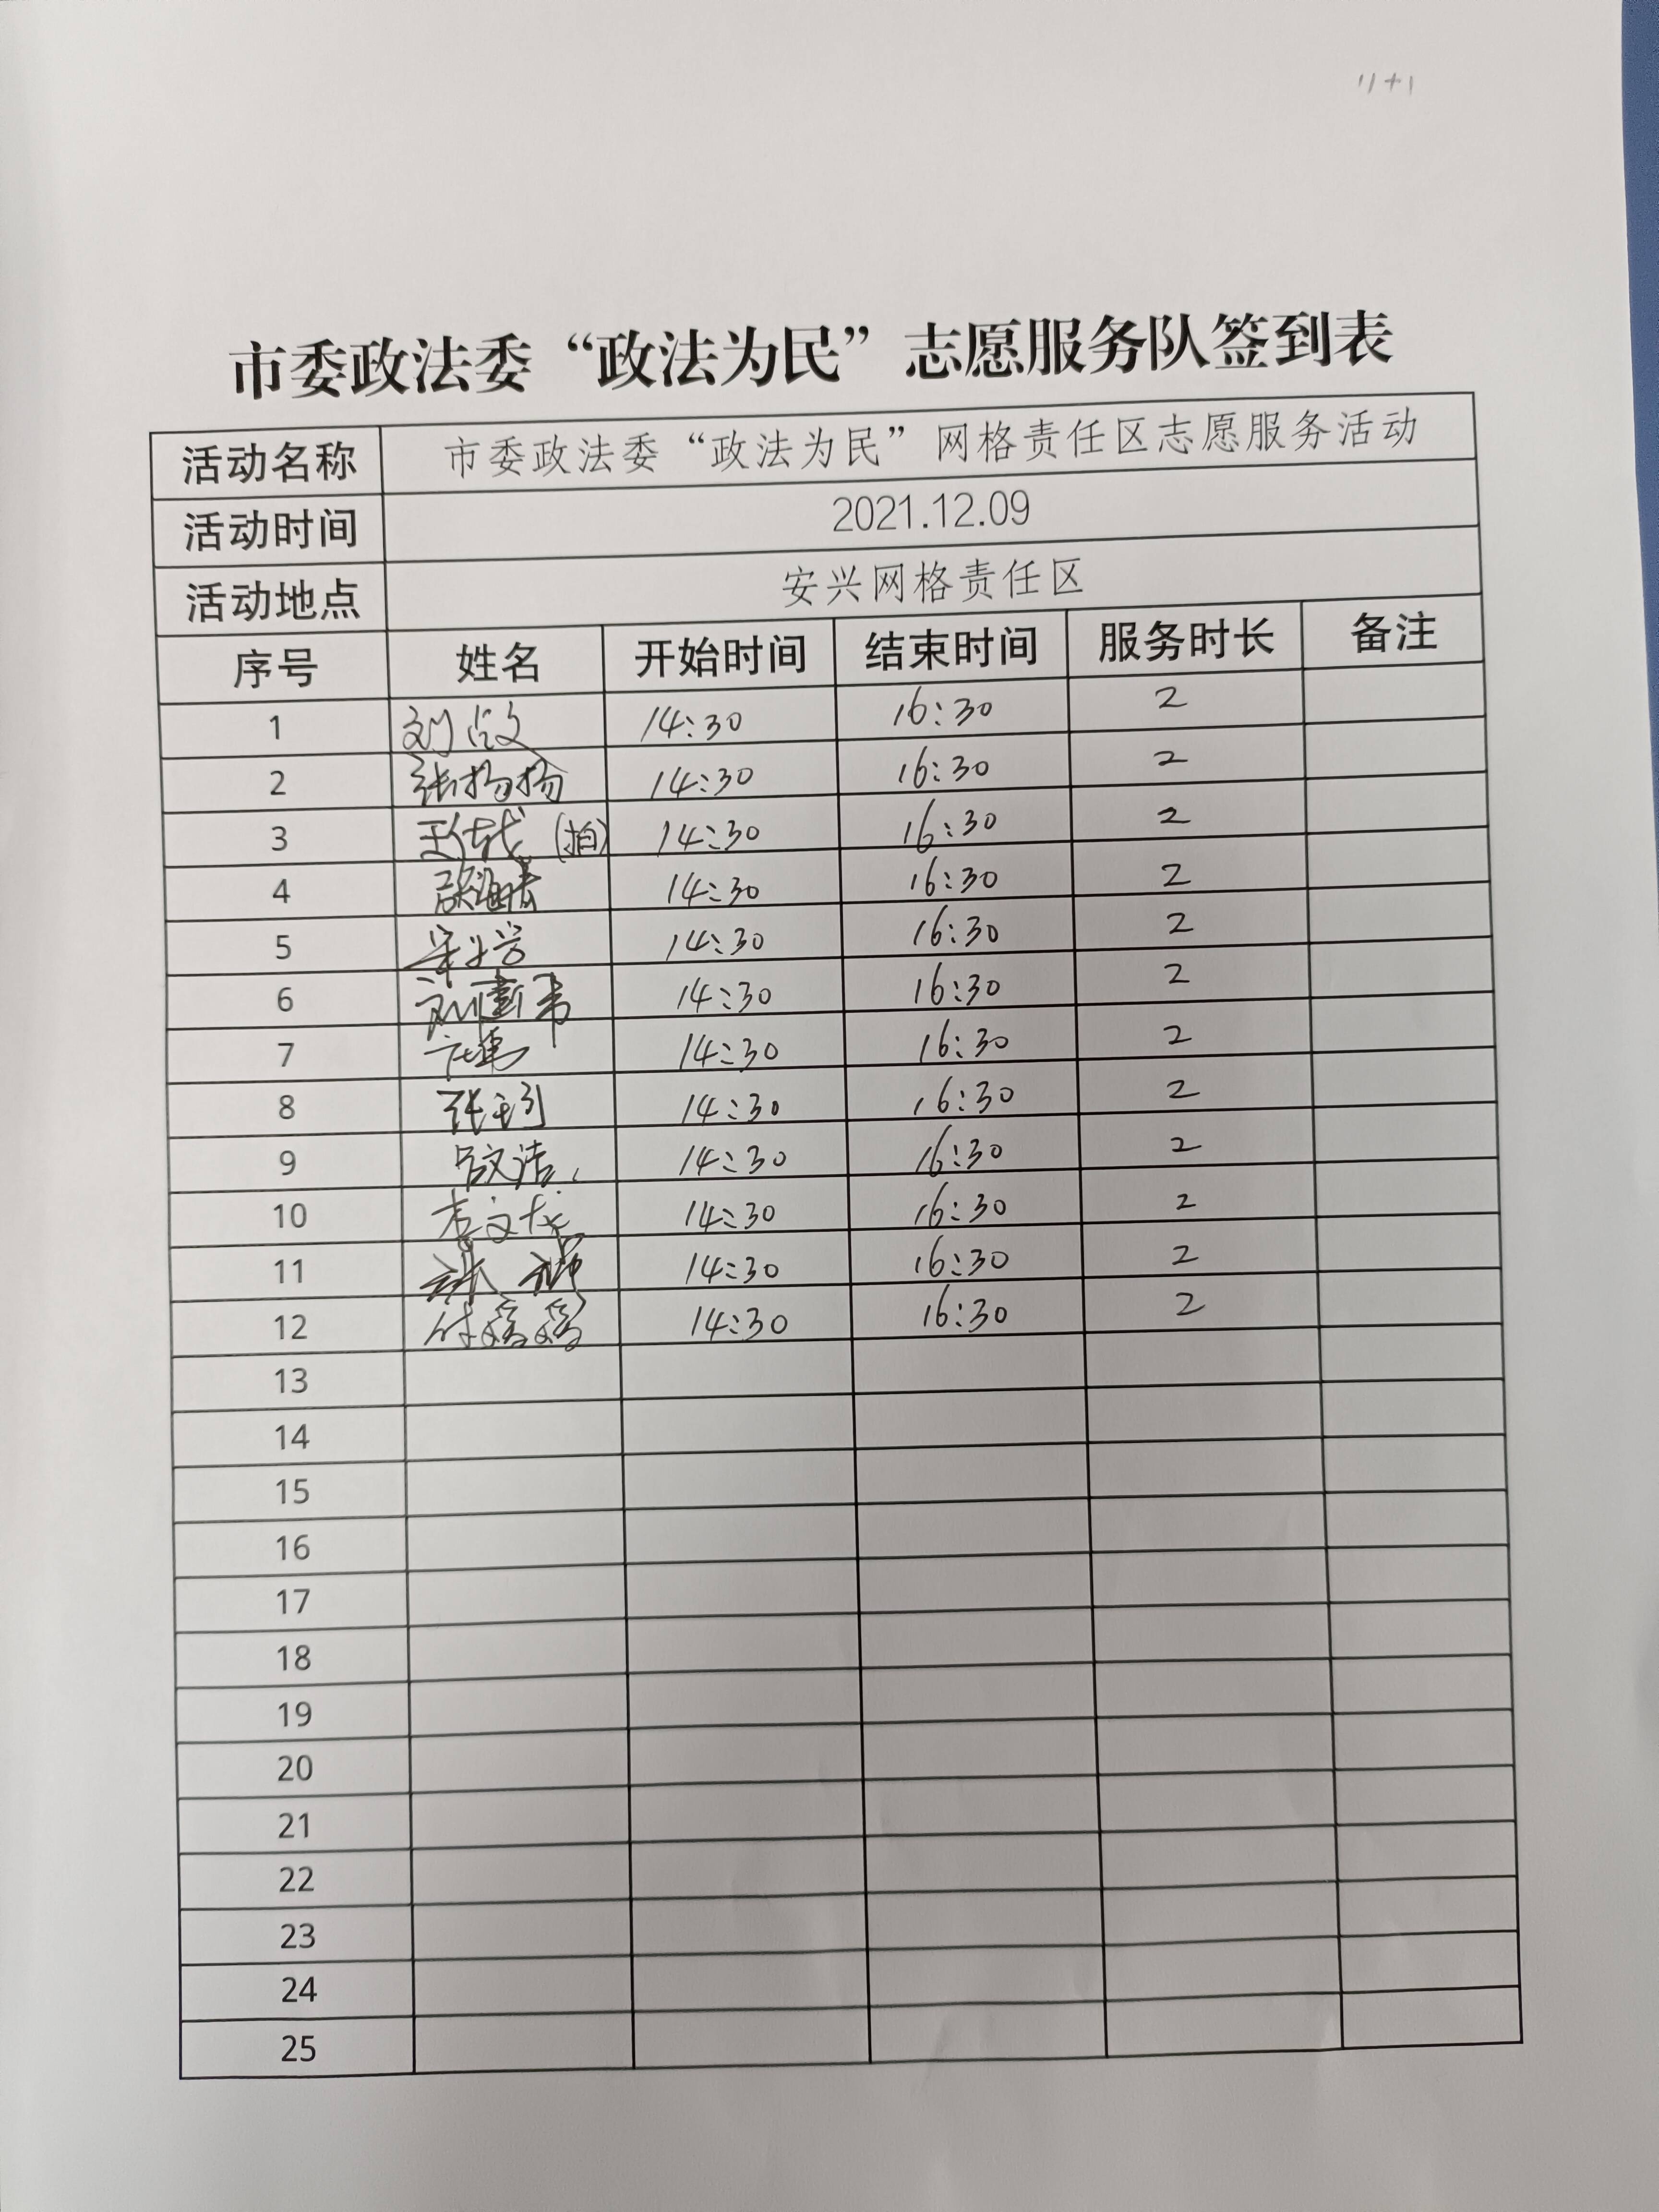 11+1
市委政法委“政法为民”志愿服务队签到表
活动名称 市委政法委“政法为民”网格责任区志愿服务活动
活动时间 2021.12.09
活动地点 安兴网格责任区
序号 姓名 开始时间 结束时间 服务时长 备注
1 刘 14:30 16:30 2
2 张扬扬 14:30 16:30 2
3 (拍) 14:30 16:30 2
4 14:30 16:30 2
5 14:30 16:30 2
6 刘 14:30 16:30 2
7 14:30 16:30 2
8 张 14:30 16:30 2
9 吕文洁 14:30 16:30 2
10 李文龙 14:30 16:30 2
11 14:30 16:30 2
12 付 14:30 16:30 2
13
14
15
16
17
18
19
20
21
22
23
24
25